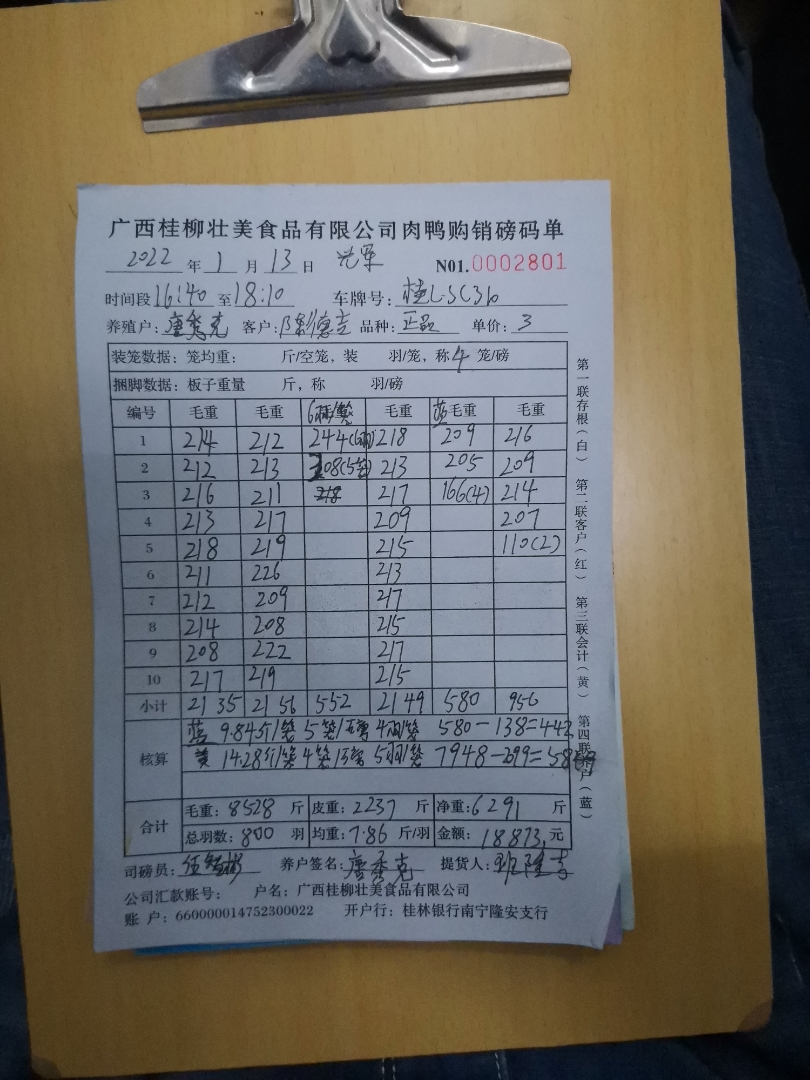 广西桂柳壮美食品有限公司肉鸭购销磅码单
2022 年 1 月 13 日 N01.0002801
时间段 16:40 至 18:10 车牌号: 桂L·SC36
养殖户: 唐秀克 客户: 陈德 品种: 正品 单价: 3
装笼数据: 笼均重: 斤/空笼, 装 羽/笼, 称 4 笼/磅
捆脚数据: 板子重量 斤, 称 羽/磅
编号 毛重 毛重 6羽/笼 毛重 蓝毛重 毛重
1 214 212 244(6羽) 218 209 216
2 212 213 308(5笼) 213 205 209
3 216 211 218 217 166(4) 214
4 213 217 209 207
5 218 219 215 110(2)
6 211 226 213
7 212 209 217
8 214 208 215
9 208 222 217
10 217 219 215
小计 2135 2156 552 2149 580 956
核算
蓝 9.84斤/笼 5笼/磅 4羽/笼 580-138=442
黄 14.28斤/笼 4笼/磅 5羽/笼 7948-2099=5849
合计
毛重: 8528 斤 皮重: 2237 斤 净重: 6291 斤
总羽数: 800 羽 均重: 7.86 斤/羽 金额: 18873 元
司磅员: 养户签名: 唐秀克 提货人:
公司汇款账号: 户名: 广西桂柳壮美食品有限公司
账 户: 660000014752300022 开户行: 桂林银行南宁隆安支行
第一联存根(白) 第二联客户(红) 第三联会计(黄) 第四联养户(蓝)